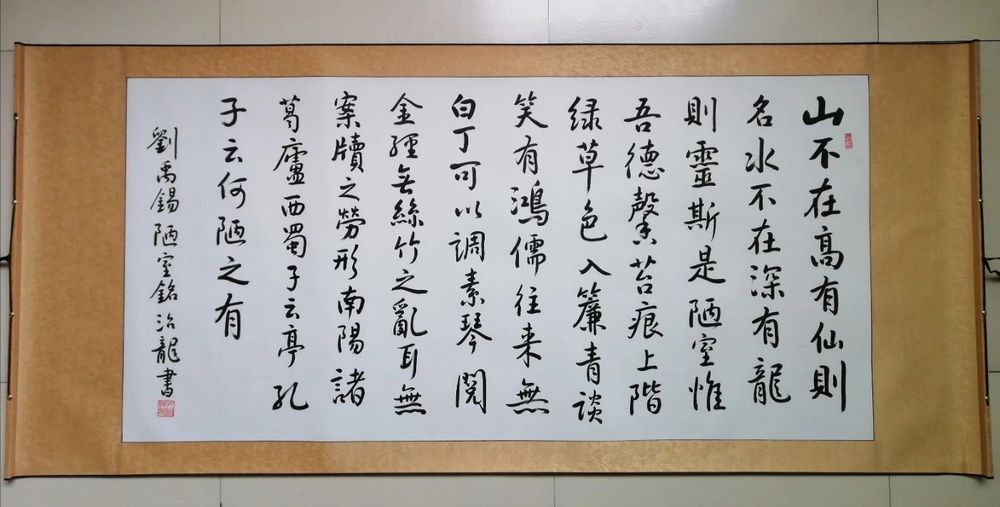 山不在高有仙則
名水不在深有龍
則靈斯是陋室惟
吾德馨苔痕上階
绿草色入簾青談
笑有鴻儒往来無
白丁可以調素琴閱
金經無絲竹之亂耳無
案牘之勞形南陽諸
葛廬西蜀子云亭孔
子云何陋之有
劉禹錫陋室銘治龍書